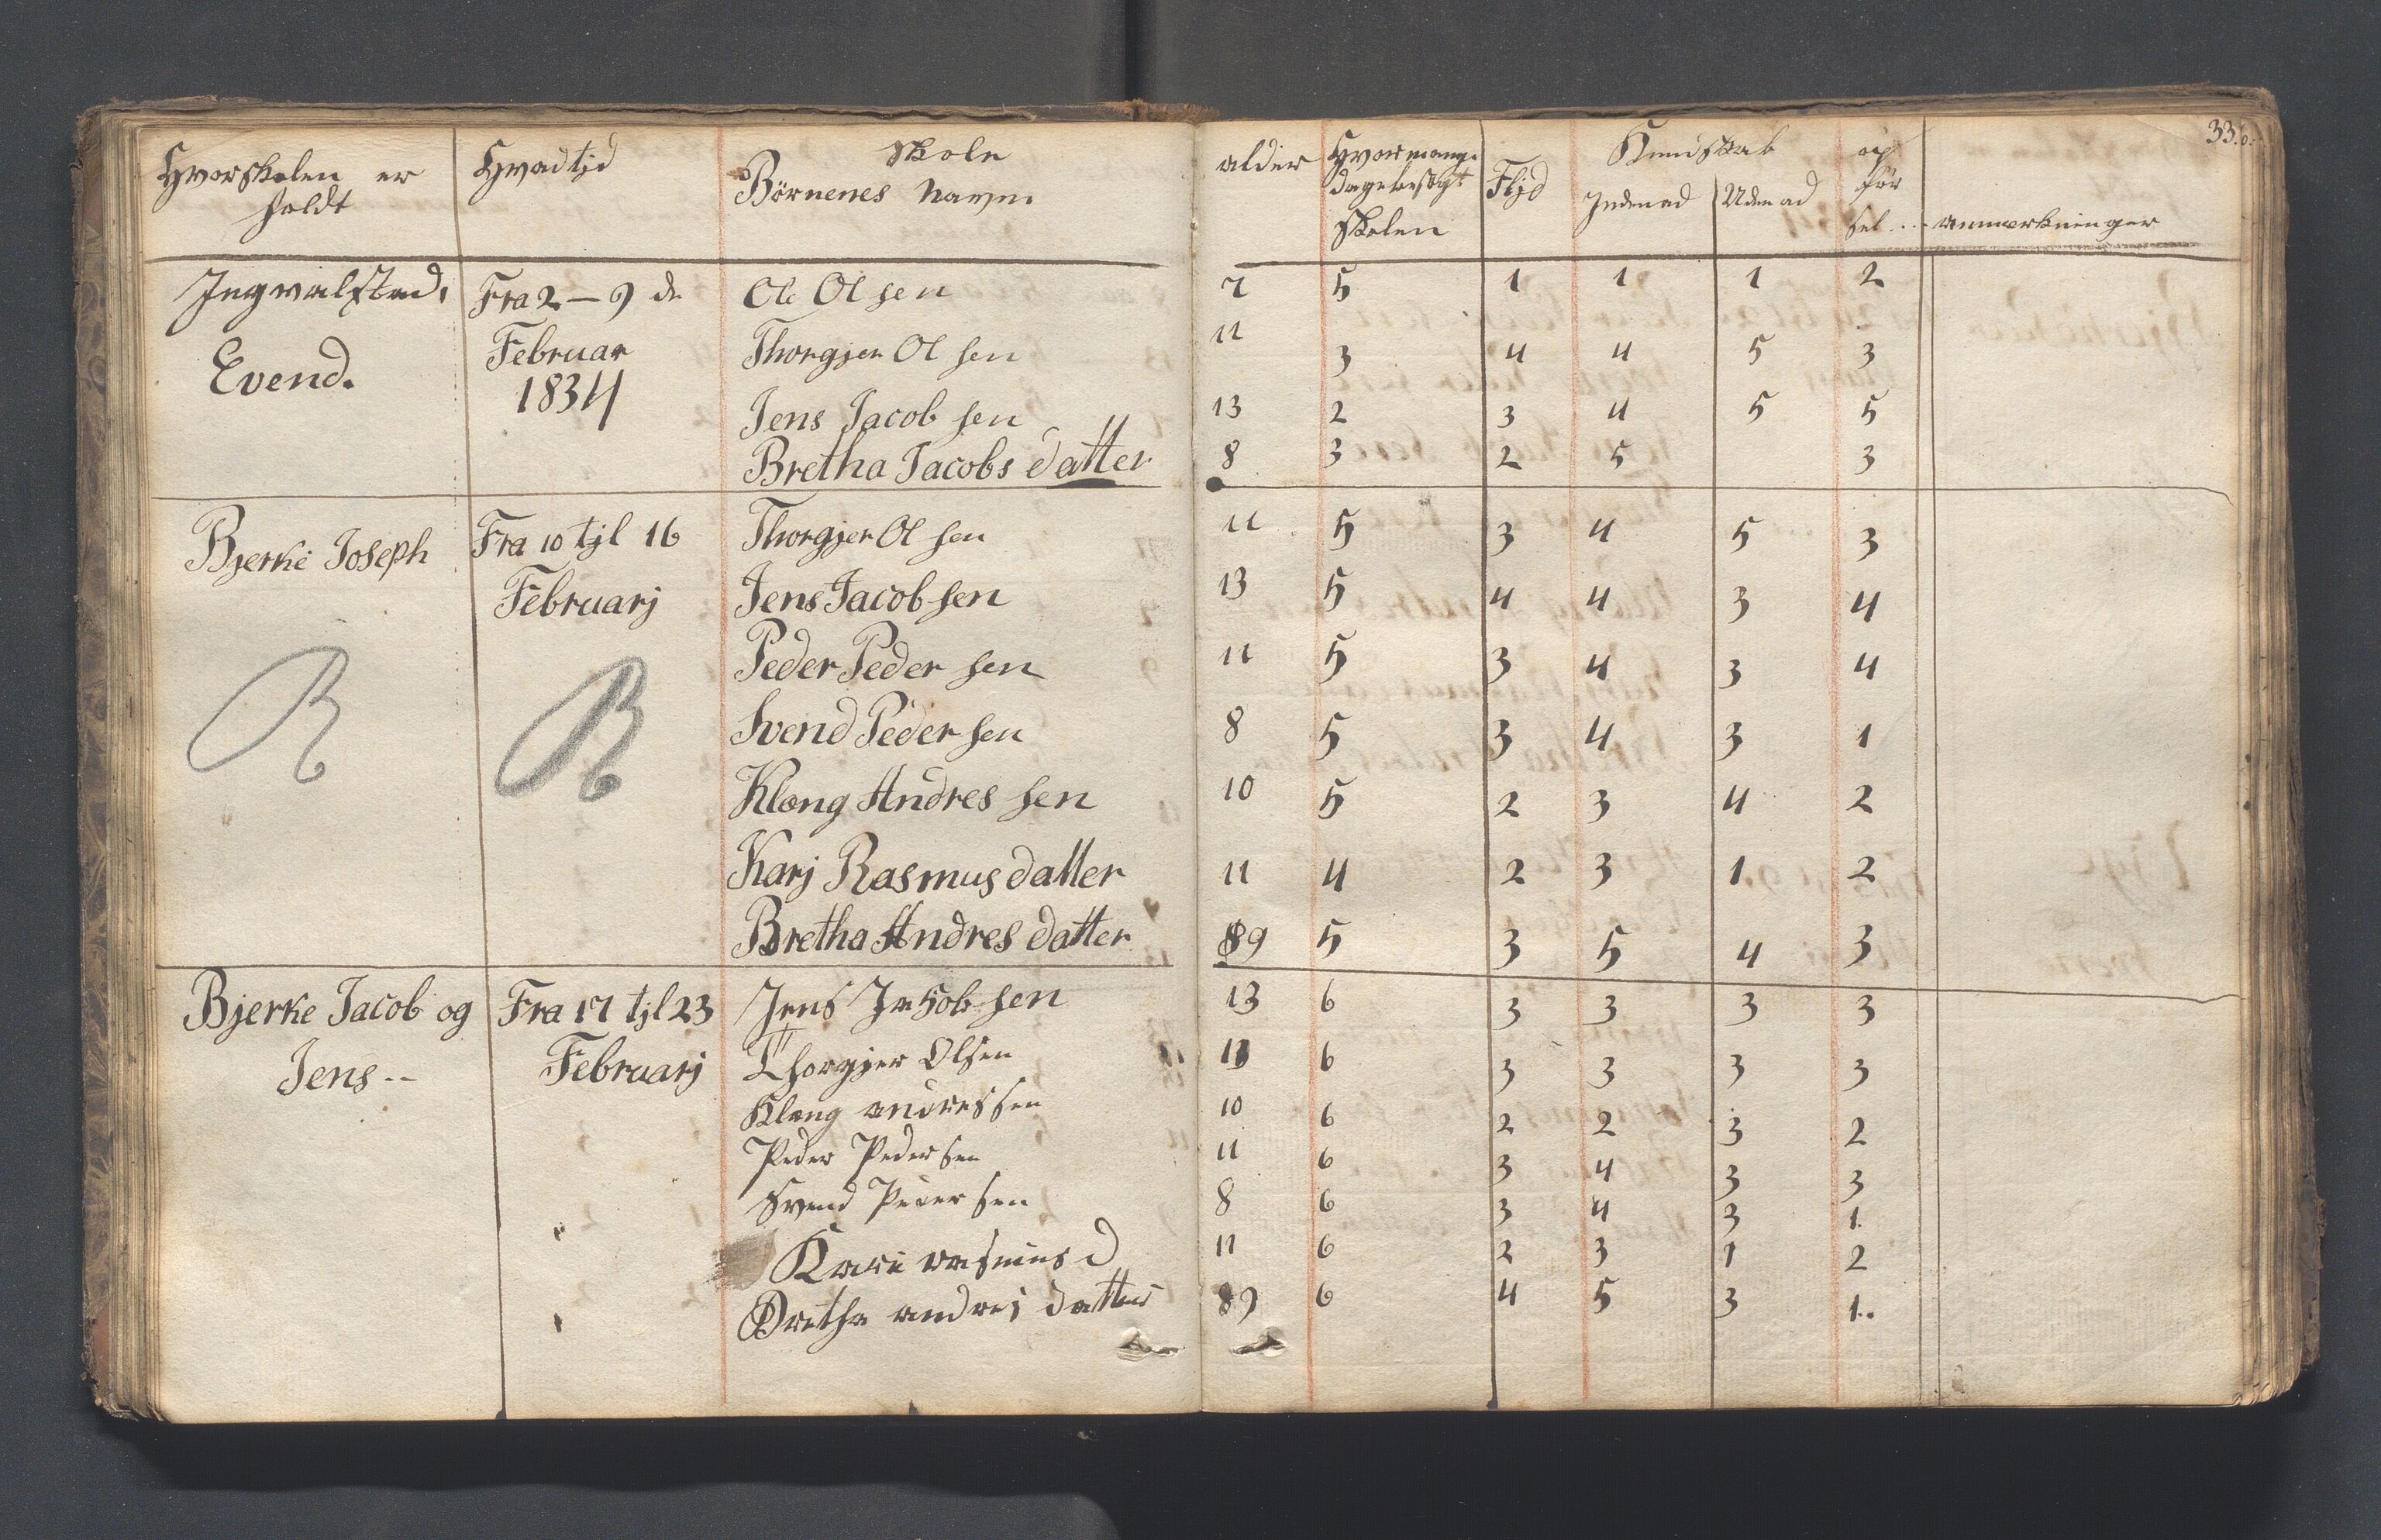 33.
Hvorskolen er holdt
Hvad tid
Skole Børnenes Navn
alder
Hvormange dage besøgt Skolen
Flid
Kundskab
Indenad
Udenad
op før sel ...
anmerkninger
Ingvalstad,
Evend.
Fra 2 - 9 de
Februar
1834
Ole Olsen 7 5 1 1 1 2
Thorgjer Olsen 11 3 4 4 5 3
Jens Jacobsen 13 2 3 4 5 5
Bretha Jacobs datter 8 3 2 5 3
Bjerke Joseph
Fra 10 tjl 16
Februarj
Thorgjer Olsen 11 5 3 4 5 3
Jens Jacobsen 13 5 4 4 3 4
Peder Pedersen 11 5 3 4 3 4
Svend Pedersen 8 5 3 4 3 1
Klæng Andressen 10 5 2 3 4 2
Karj Rasmusdatter 11 4 2 3 1 2
Bretha Andres datter 9 5 3 5 4 3
Bjerke Jacob og
Jens --
Fra 17 tjl 23
Februarj
Jens Jakobsen 13 6 3 3 3 3
Thorgjer Olsen 11 6 3 3 3 3
Klæng andressen 10 6 2 2 3 2
Peder Pedersen 11 6 3 4 3 3
Svend Pedersen 8 6 3 4 3 1.
Kari rasmus d 11 6 2 3 1 2
Bretha andres datter 89 6 4 5 3 1..